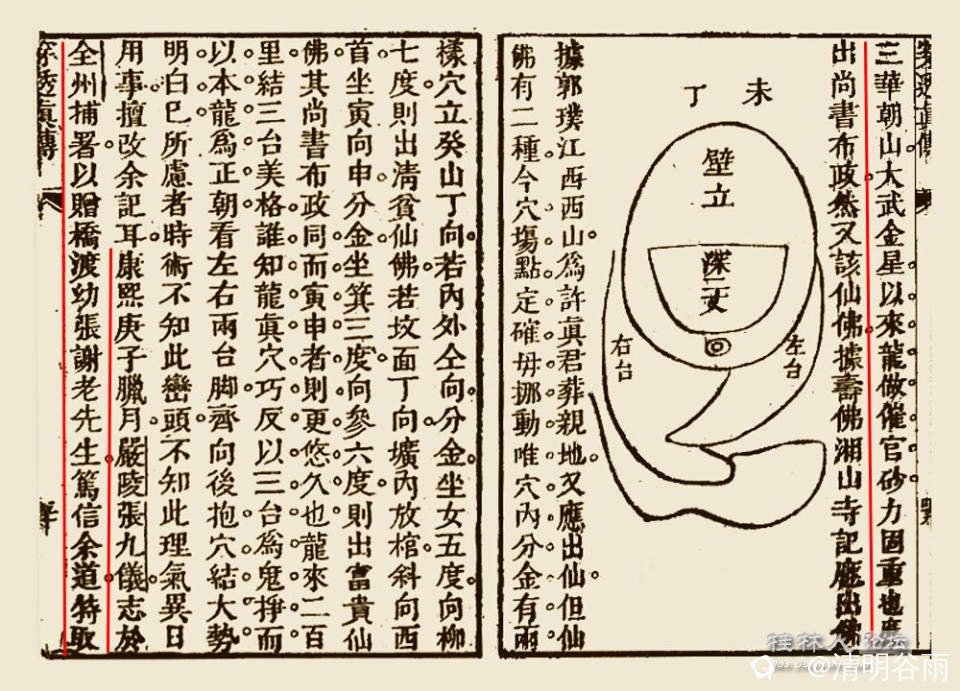 三華朝山太武金星以來龍做催官砂力固重也
出尚書布政然又該仙佛據壽佛湘山寺記應出佛
未
丁
壁立
深二丈
左台
右台
據郭璞江西西山爲許眞君葬親地又應出仙但仙
佛有二種今穴塲點定確毋挪動唯穴內分金有兩
樣穴立癸山丁向若內外仝向分金坐女五度向柳
七度則出清貧仙佛若坟面丁向壙內放棺斜向西
首坐寅向申分金坐箕三度向參六度則出富貴仙
佛其尚書布政同而寅申者則更悠久也龍來二百
里結三台美格誰知龍眞穴巧反以三台爲鬼掙而
以本龍爲正朝看左右兩台脚齊向後抱穴結大勢
明白巳所慮者時術不知此巒頭不知此理氣異日
用事擅改余記耳康熙庚子臘月嚴陵張九儀志於
全州捕署以贈橋渡幼張謝老先生篤信余道特取
穿透眞傳
桂林人论坛
@清明谷雨